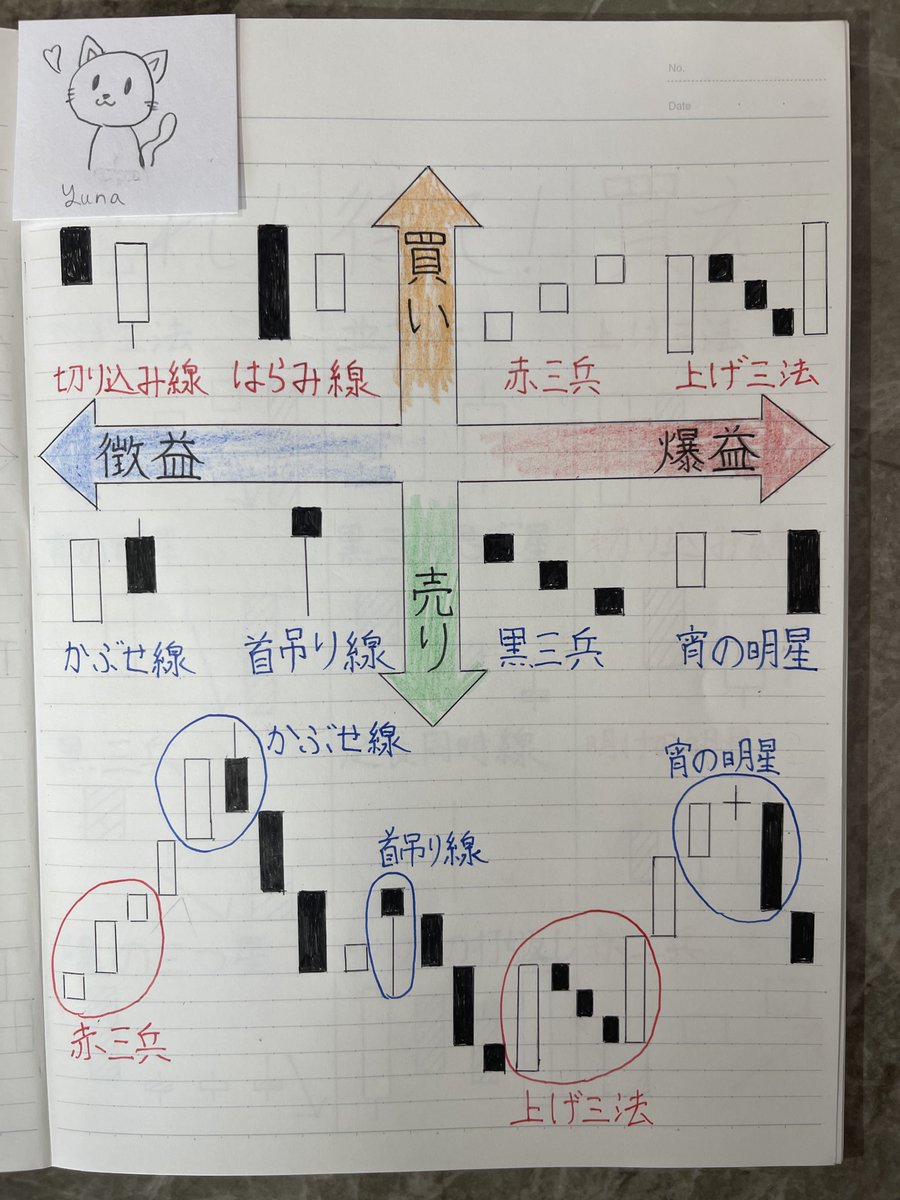 No.
Date
Yuna
買い
切り込み線
はらみ線
赤三兵
上げ三法
徴益
爆益
売り
かぶせ線
首吊り線
黒三兵
宵の明星
かぶせ線
宵の明星
首吊り線
赤三兵
上げ三法